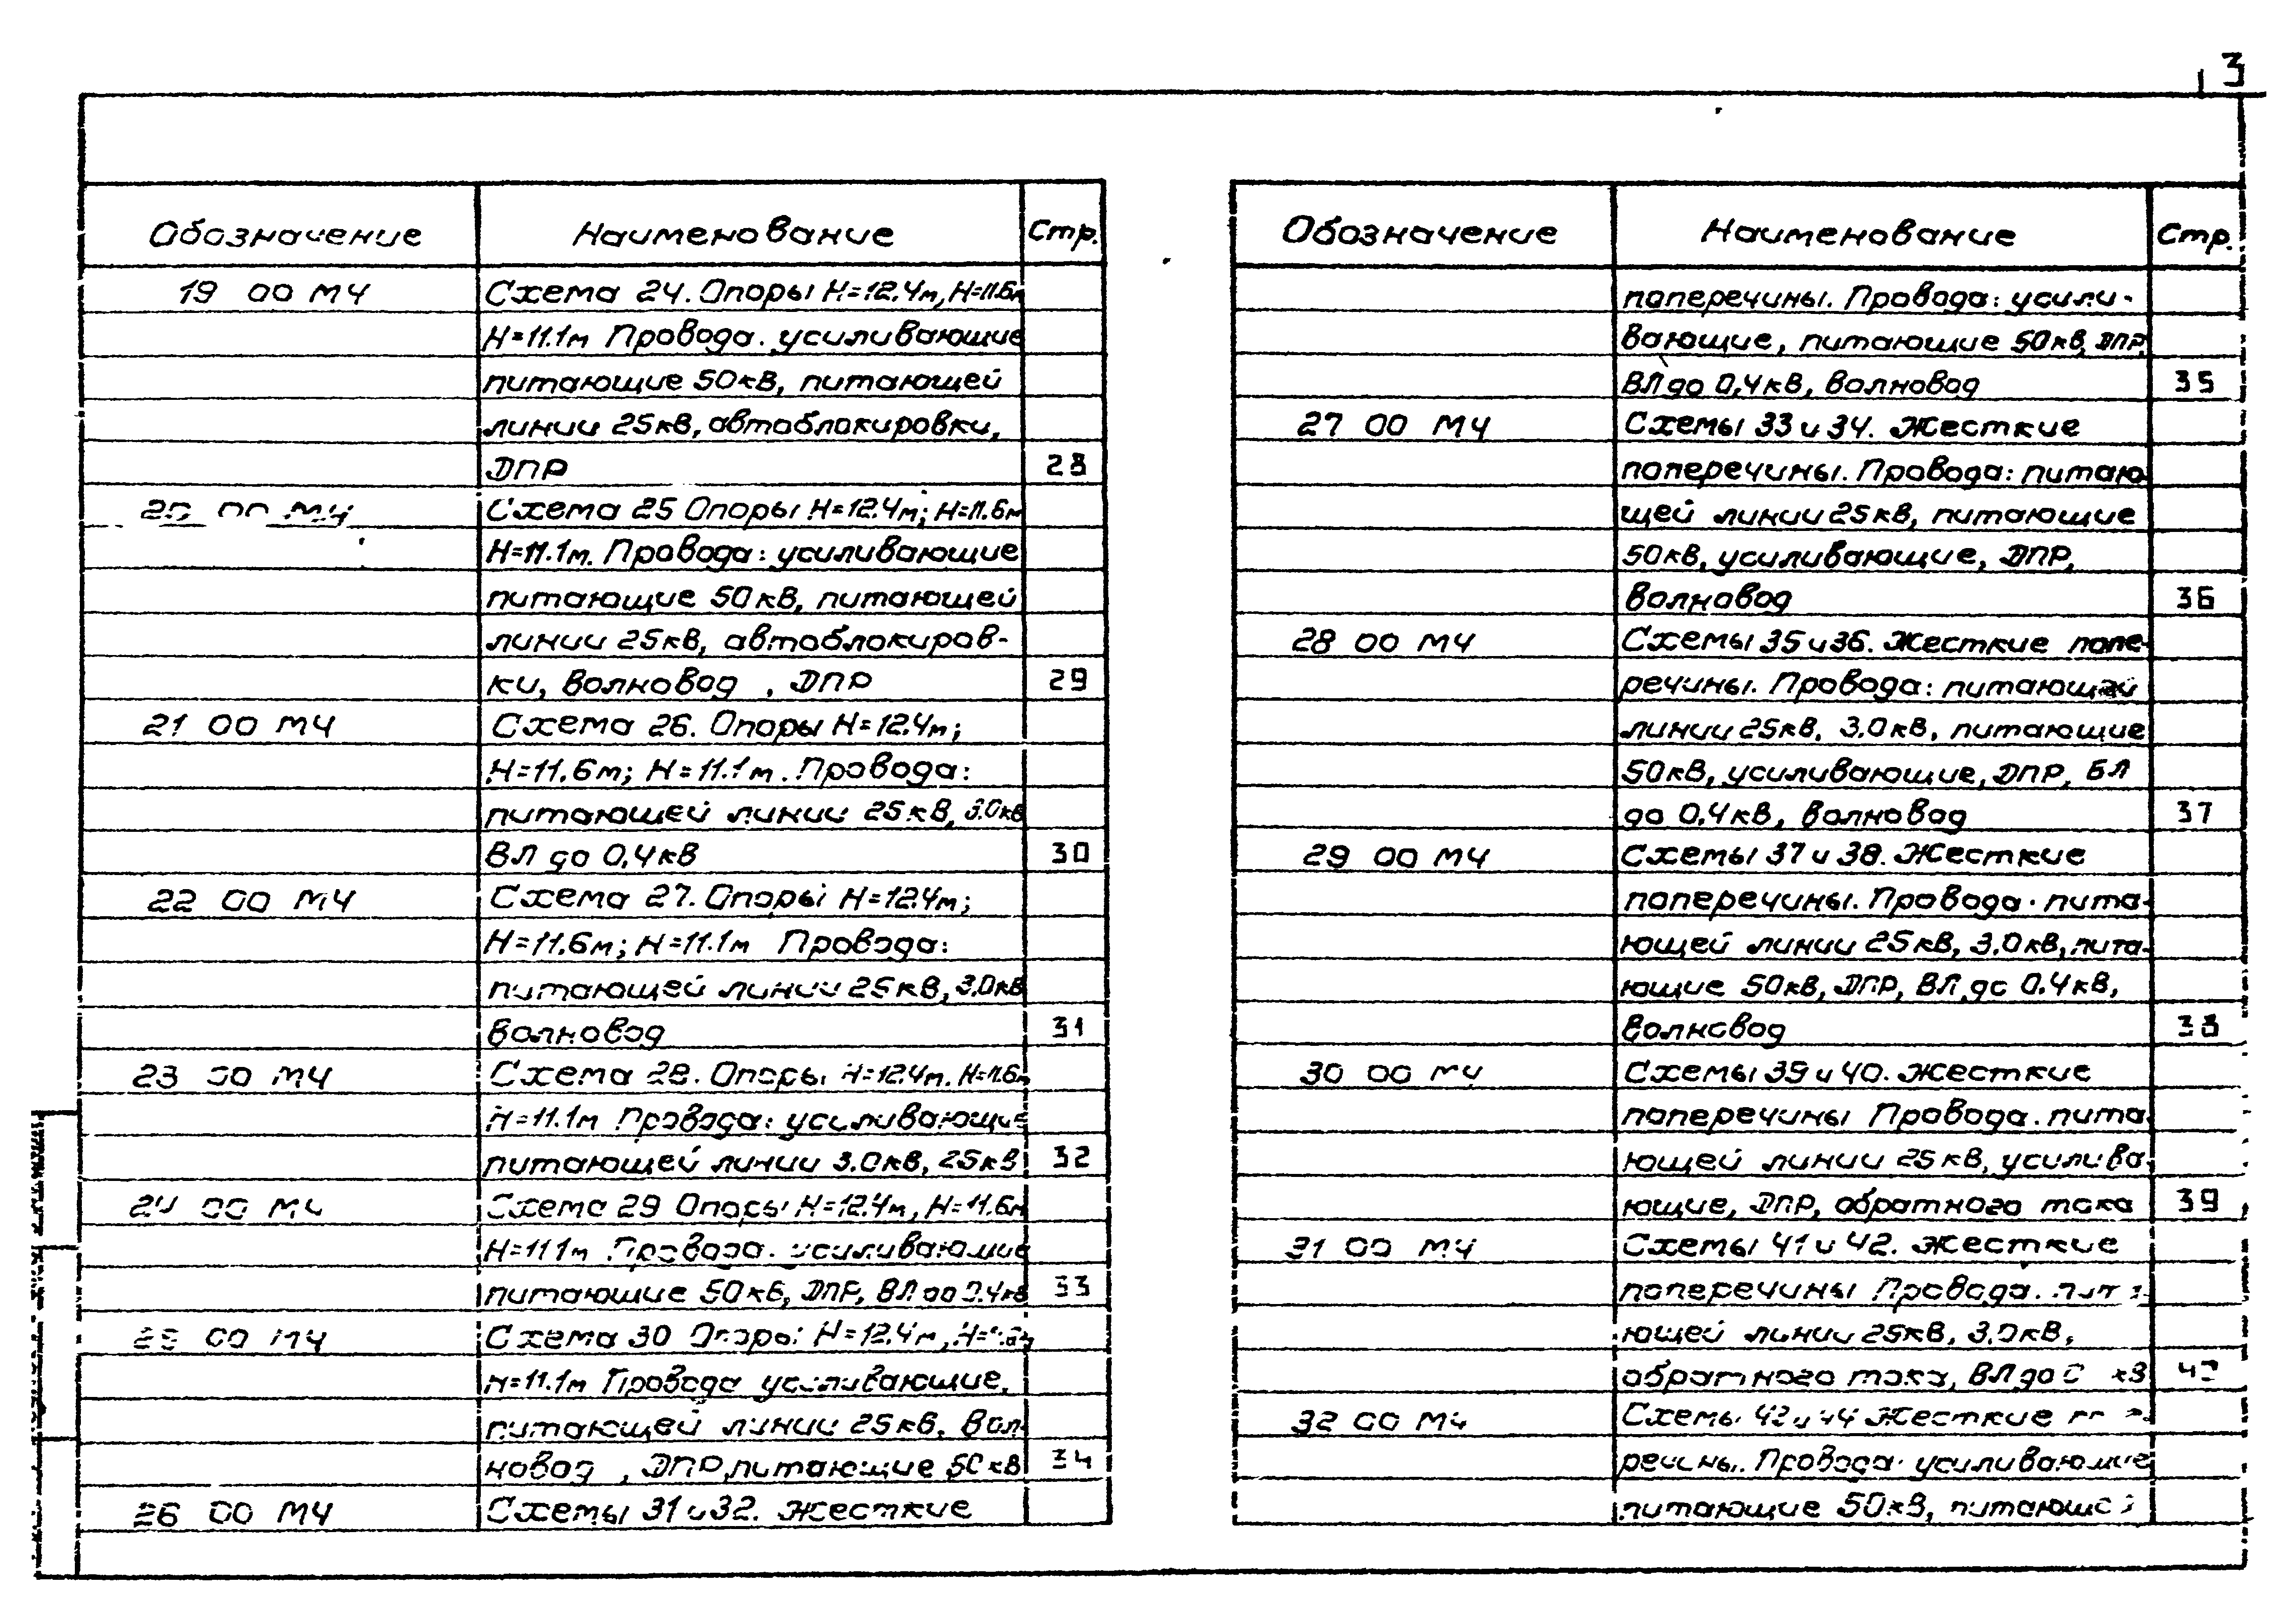 3
Обозначение Наименование Стр.
19 00 МЧ Схема 24. Опоры Н=12.4м, Н=11.6м
Н=11.1м Провода. усиливающие
питающие 50кВ, питающей
линии 25кВ, автоблокировки,
ДПР 28
20 00 МЧ Схема 25 Опоры Н=12.4м; Н=11.6м
Н=11.1м. Провода: усиливающие
питающие 50кВ, питающей
линии 25кВ, автоблокиров-
ки, волновод , ДПР 29
21 00 МЧ Схема 26. Опоры Н=12.4м;
Н=11.6м; Н=11.1м. Провода:
питающей линии 25кВ, 3.0кВ
ВЛ до 0,4кВ 30
22 00 МЧ Схема 27. Опоры Н=12.4м;
Н=11.6м; Н=11.1м Провода:
питающей линии 25кВ, 3.0кВ
волновод 31
23 00 МЧ Схема 28. Опоры Н=12.4м. Н=11.6м
Н=11.1м Провода: усиливающие
питающей линии 3.0кВ, 25кВ 32
24 00 МЧ Схема 29 Опоры Н=12.4м, Н=11.6м
Н=11.1м Провода. усиливающие
питающие 50кВ, ДПР, ВЛ до 0.4кВ 33
25 00 МЧ Схема 30 Опоры Н=12.4м,
Н=11.1м Провода усиливающие,
питающей линии 25кВ, вол-
новод , ДПР, питающие 50кВ 34
26 00 МЧ Схемы 31 и 32. Жесткие
Обозначение Наименование Стр.
поперечины. Провода: усили-
вающие, питающие 50кВ, ДПР,
ВЛ до 0,4кВ, волновод 35
27 00 МЧ Схемы 33 и 34. Жесткие
поперечины. Провода: питаю-
щей линии 25кВ, питающие
50кВ, усиливающие, ДПР,
волновод 36
28 00 МЧ Схемы 35 и 36. Жесткие попе-
речины. Провода: питающей
линии 25кВ, 3.0кВ, питающие
50кВ, усиливающие, ДПР, ВЛ
до 0,4кВ, волновод 37
29 00 МЧ Схемы 37 и 38. Жесткие
поперечины. Провода. пита-
ющей линии 25кВ, 3.0кВ, пита-
ющие 50кВ, ДПР, ВЛ до 0.4кВ,
волновод 38
30 00 МЧ Схемы 39 и 40. Жесткие
поперечины Провода. пита-
ющей линии 25кВ, усилива-
ющие, ДПР, обратного тока 39
31 00 МЧ Схемы 41 и 42. Жесткие
поперечины Провода.
ющей линии 25кВ, 3.0кВ,
обратного тока, ВЛ до кВ
32 00 МЧ Схемы и 44 Жесткие
речины. Провода: усиливающие
питающие 50кВ, питающей